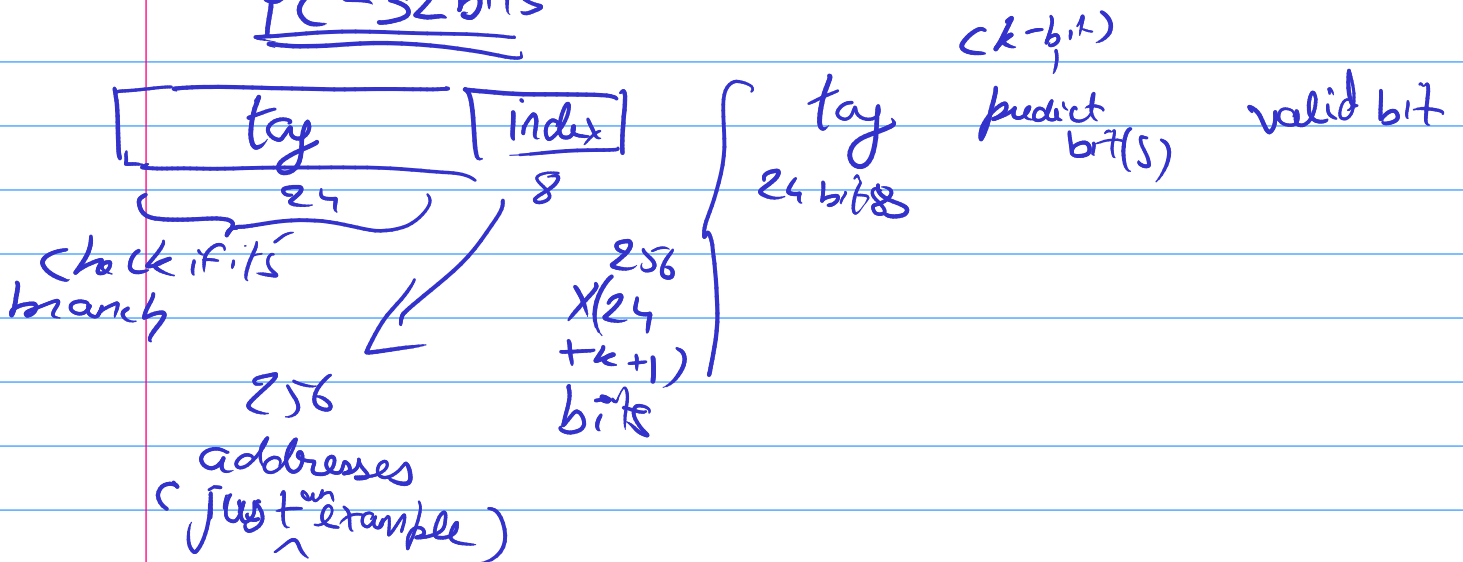 PC - 32 bits
(k-bit)
tag index tag predict bit(s) valid bit
24 8 24 bits
check if its
branch
256
X(24
+k+1)
bits
256
addresses
(just an example)